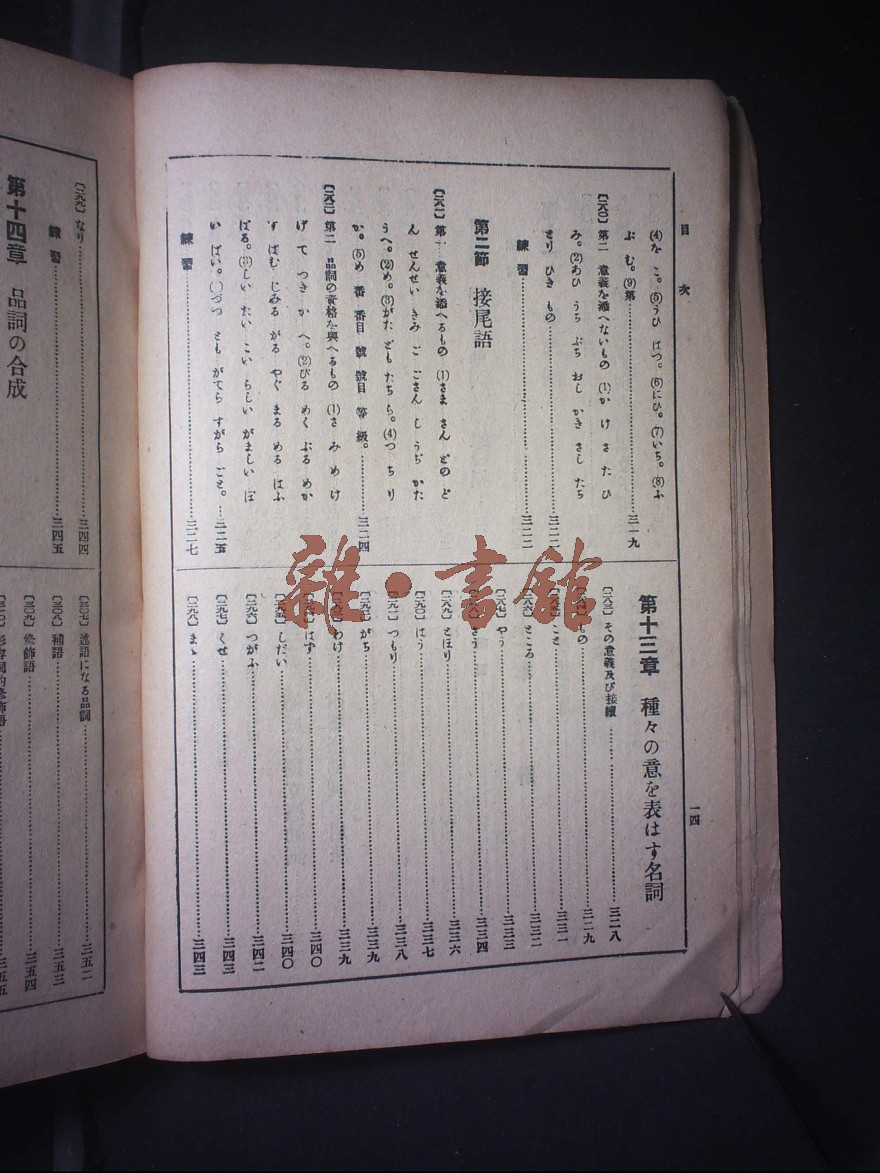 目次
一四
(4)を こ。(5)うひ はつ。(6)にひ。(7)いち。(8)ふ
ぶ む。(9)第……三一九
〔二八〇〕第二 意義を添へないもの (1)か け さ た ひ
み。(2)あひ うち ぶち おし かき さし たち
さり ひき もの……三二二
練習……三二二
第二節 接尾語
〔二八一〕第一 意義を添へるもの (1)さま さん どの ど
ん せんせい きみ ご ごさん し うぢ かた
うへ。(2)め。(3)がた ども たち ら。(4)つ ちり
か。(5)め 番 番目 號 號目 等 級。……三二四
〔二八二〕第二 品詞の資格を與へるもの (1)さ み め け
げ て つき か へ。(2)びる めく ぶる めか
す ばむ じみる がる やぐ まる める はふ
ばる。(3)しい たい こい らしい がましい ぽ
い ばい。づつ とも がてら すがら ごと。……三二五
練習……三二七
第十三章 種々の意を表はす名詞
〔二八三〕その意義及び接續……三二八
もの……三二九
こと……三三一
ところ……三三二
〔二八七〕やう……三三三
さう……三三四
〔二八九〕とほり……三三六
〔二九〇〕はう……三三七
〔二九一〕つもり……三三八
〔二九二〕がち……三三九
わけ……三三九
はず……三四〇
しだい……三四〇
〔二九六〕つがふ……三四二
〔二九七〕くせ……三四三
〔二九八〕まゝ……三四三
〔二九九〕なり……三四四
練習……三四五
第十四章 品詞の合成
〔三〇七〕述語になる品詞……三五二
〔三〇八〕補語……三五三
〔三〇九〕修飾語……三五四
〔三一〇〕形容詞的修飾語……三五五
雜・書館